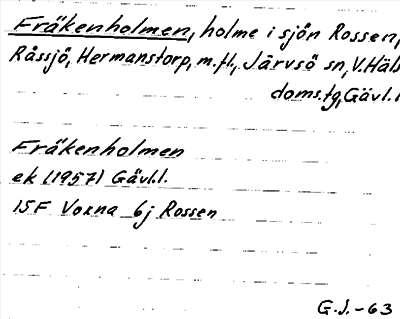 Fräkenholmen, holme i sjön Rossen,
Råssjö, Hermanstorp, m.fl., Järvsö sn, V. Häls
doms.tg, Gävl.l
Fräkenholmen
ek (1957) Gävl.l.
15F Voxna 6j Rossen
G.J.-63